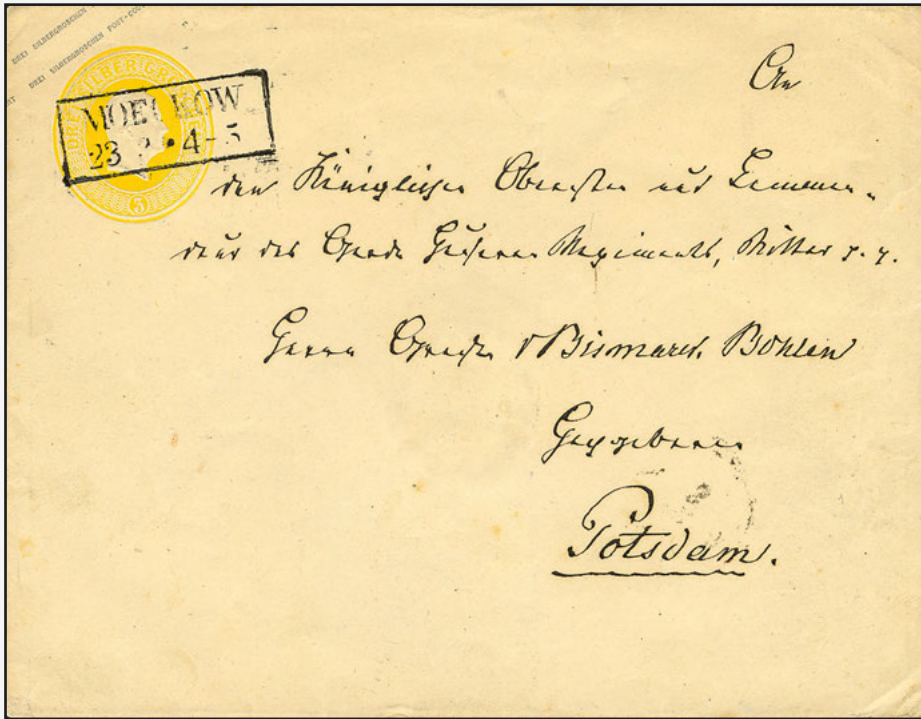 DREI SILBERGROSCHEN
DREI SILBERGROSCHEN POST-COU
DREI SILBER GROSCHEN
3
MOECKOW
23 2 • 4-5
An
den Königlichen Obersten und Comman-
deur des Garde Husaren Regiments, Ritter p. p.
Herrn Grafen v Bismarck Bohlen
Hochgeboren
Potsdam.